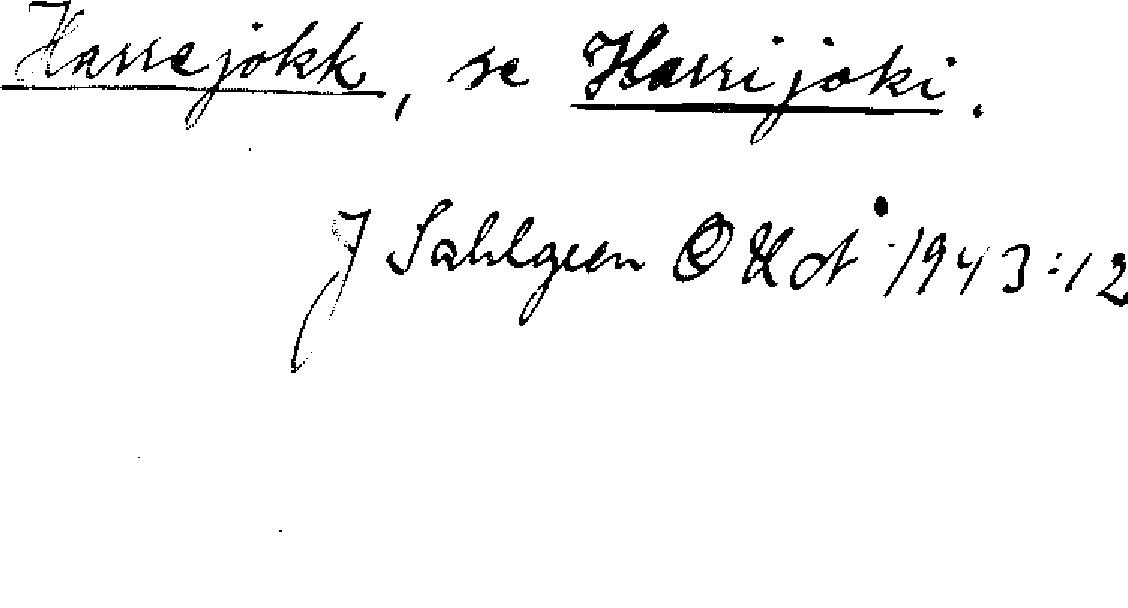 Harrejokk, se Harrijoki.
J Sahlgren 1943:12